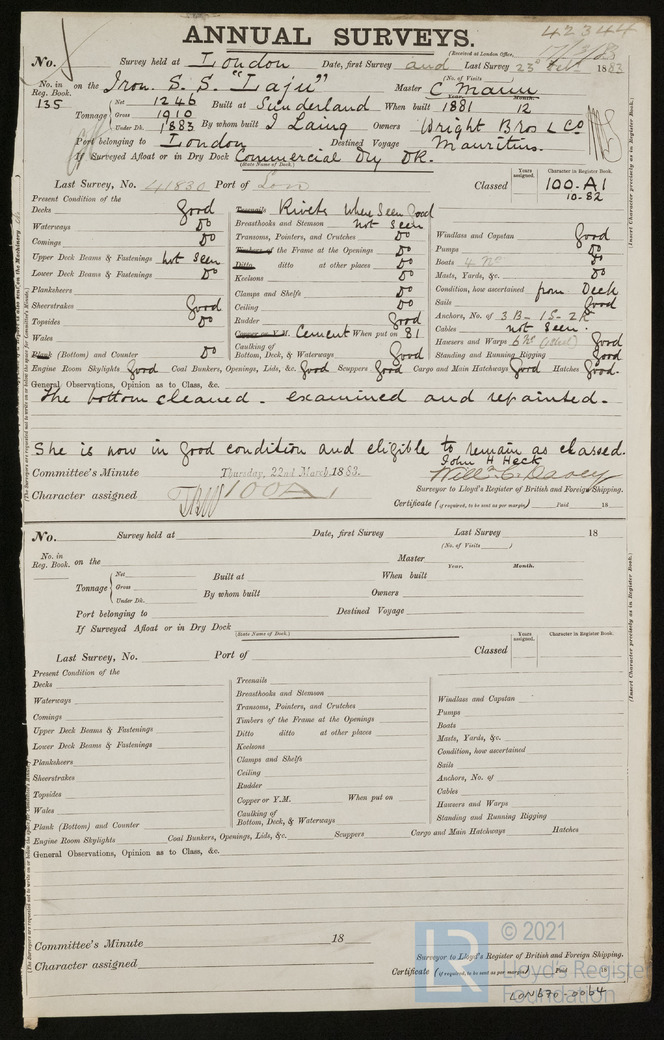 ANNUAL SURVEYS.
42344
(Received at London Office,
No. Survey held at London Date, first Survey and Last Survey 23d Feb 1883
(No. of Visits )
No. in Reg. Book. 135 on the Iron S. S. "Laju" Master C Mann
Year. Month.
Tonnage Net 1246 Built at Sunderland When built 1881 12
Gross 1910
Under Dk. 1883 By whom built J Laing Owners Wright Bros & Co
Port belonging to London Destined Voyage Mauritius.
If Surveyed Afloat or in Dry Dock Commercial Dry Dk.
(State Name of Dock.)
Last Survey, No. 41830 Port of Lon Classed Years assigned. Character in Register Book. 100-A1
10-82
Present Condition of the
Decks Good Treenails Rivets where seen Good
Waterways Do Breasthooks and Stemson not seen Windlass and Capstan Good
Comings Do Transoms, Pointers, and Crutches Do Pumps Do
Upper Deck Beams & Fastenings not seen Timbers of the Frame at the Openings Do Boats 4 no Do
Lower Deck Beams & Fastenings Do Ditto ditto at other places Do Masts, Yards, &c. Do
Planksheers Keelsons Do Condition, how ascertained from Deck
Sheerstrakes Good Clamps and Shelfs Do Sails Good
Topsides Do Ceiling Do Anchors, No. of 3 B - 1 S - 2 K
Wales Rudder Good Cables not seen.
Plank (Bottom) and Counter Do Copper or Y.M. Cement When put on 81 Hawsers and Warps Good
Caulking of Bottom, Deck, & Waterways Good Standing and Running Rigging Good
Engine Room Skylights Good Coal Bunkers, Openings, Lids, &c. Good Scuppers Good Cargo and Main Hatchways Good Hatches Good.
General Observations, Opinion as to Class, &c.
The bottom cleaned - examined and repainted.
She is now in good condition and eligible to remain as classed.
John H Heck
Committee's Minute Thursday, 22nd March, 1883.
Willm C. Davey
Character assigned 100A1
Surveyor to Lloyd's Register of British and Foreign Shipping.
Certificate (if required, to be sent as per margin) Paid 18
No. Survey held at Date, first Survey Last Survey 18
(No. of Visits )
No. in Reg. Book. on the Master
Year. Month.
Tonnage Net Built at When built
Gross
Under Dk. By whom built Owners
Port belonging to Destined Voyage
If Surveyed Afloat or in Dry Dock
(State Name of Dock.)
Last Survey, No. Port of Classed Years assigned. Character in Register Book.
Present Condition of the
Decks Treenails
Waterways Breasthooks and Stemson Windlass and Capstan
Comings Transoms, Pointers, and Crutches Pumps
Upper Deck Beams & Fastenings Timbers of the Frame at the Openings Boats
Lower Deck Beams & Fastenings Ditto ditto at other places Masts, Yards, &c.
Planksheers Keelsons Condition, how ascertained
Sheerstrakes Clamps and Shelfs Sails
Topsides Ceiling Anchors, No. of
Wales Rudder Cables
Plank (Bottom) and Counter Copper or Y.M. When put on Hawsers and Warps
Caulking of Bottom, Deck, & Waterways Standing and Running Rigging
Engine Room Skylights Coal Bunkers, Openings, Lids, &c. Scuppers Cargo and Main Hatchways Hatches
General Observations, Opinion as to Class, &c.
Committee's Minute 18
Character assigned
Surveyor to Lloyd's Register of British and Foreign Shipping.
Certificate (if required, to be sent as per margin) Paid 18
(Insert Character precisely as in Register Book.)
(Insert Character precisely as in Register Book.)
LR © 2021
Lloyd's Register
Foundation
LON670-0064